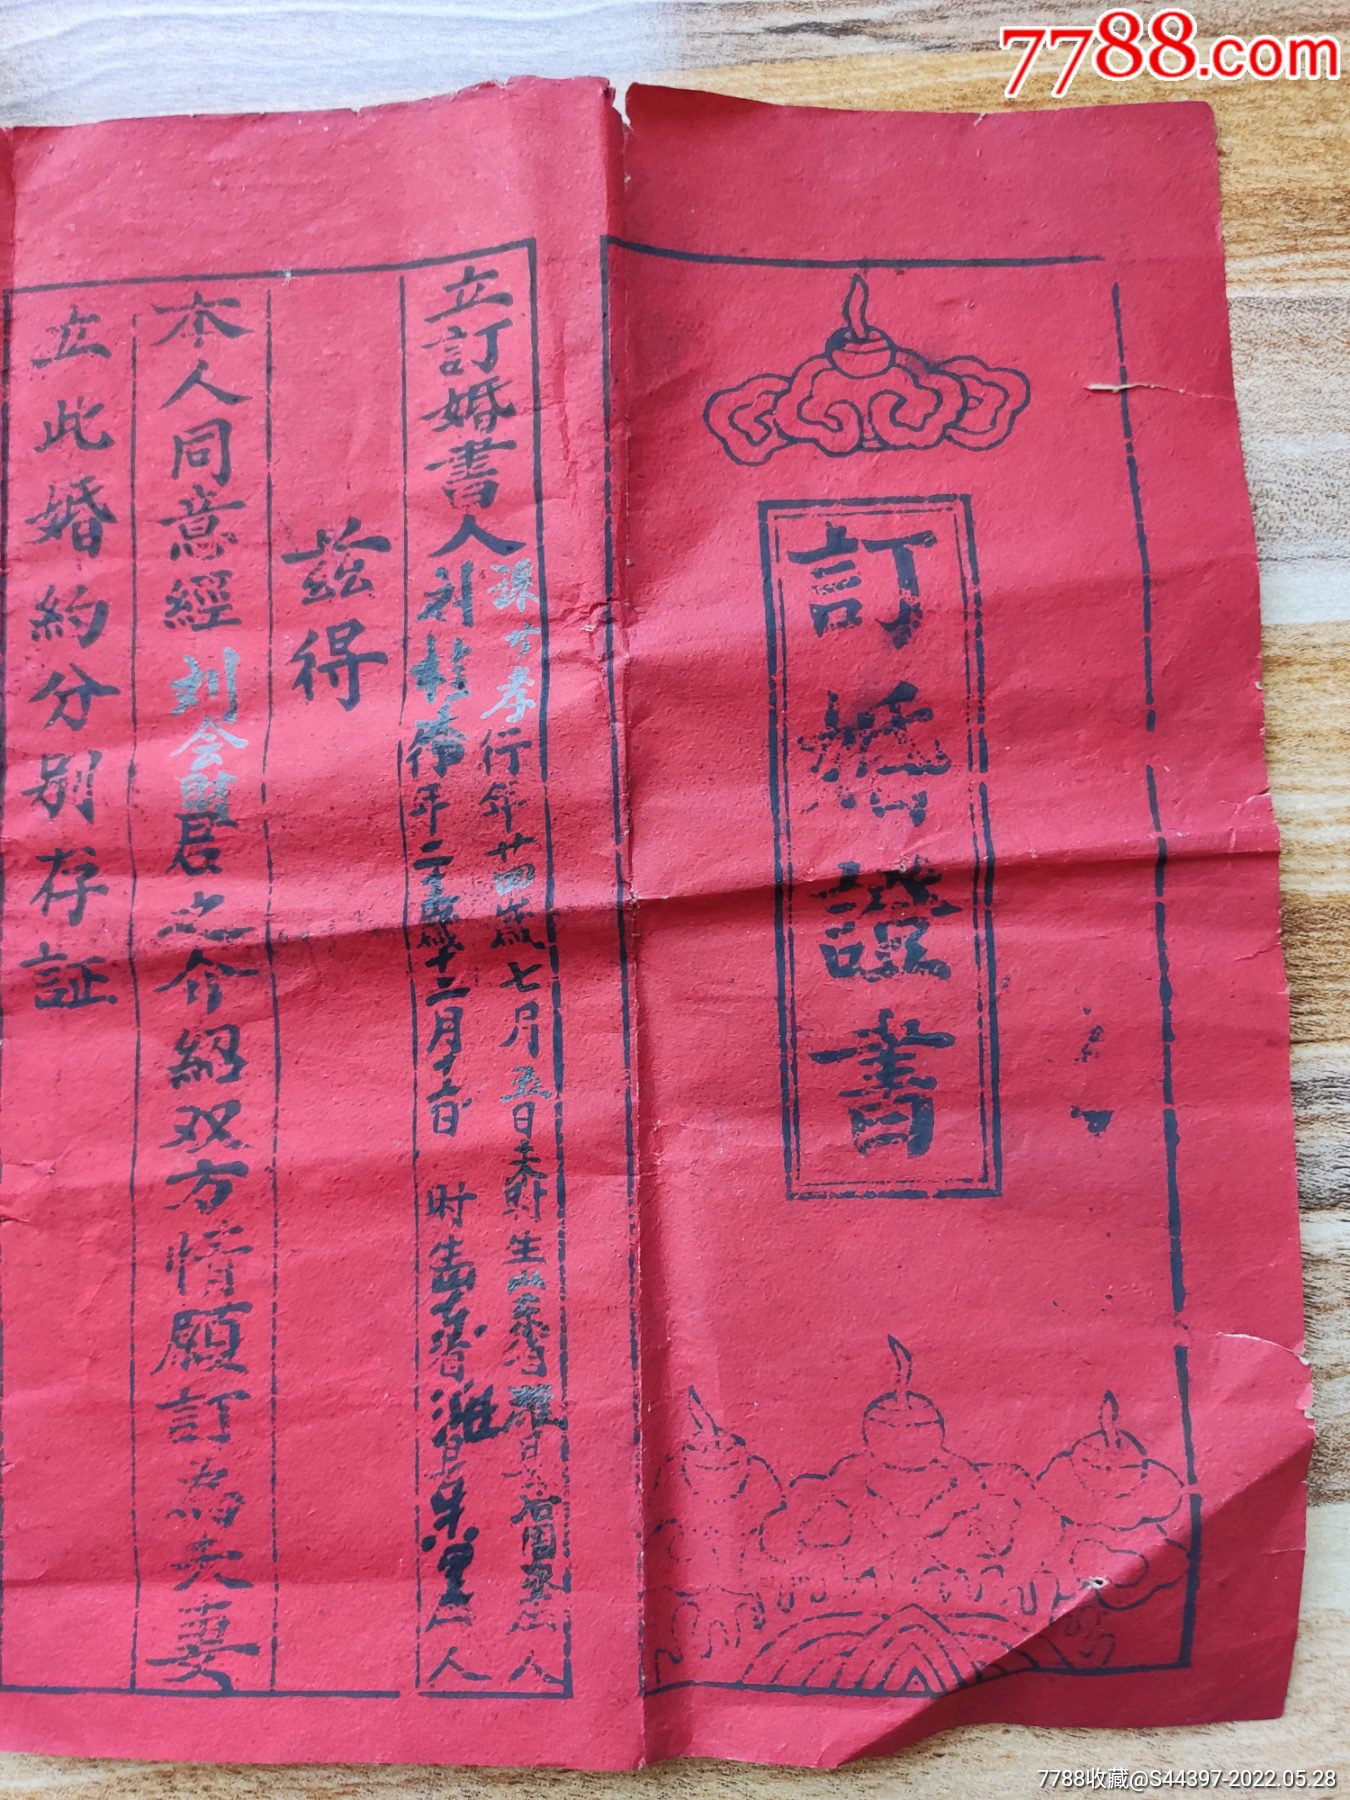 7788.com
訂婚證書
立訂婚書人
行年廿四歲七月五日 時生山東省 縣 人
行年二十歲十二月十六日 時生山東省潍 人
兹得
本人同意經刘会財君之介紹双方情願訂為夫妻
立此婚約分别存証
7788收藏@S44397-2022.05.28